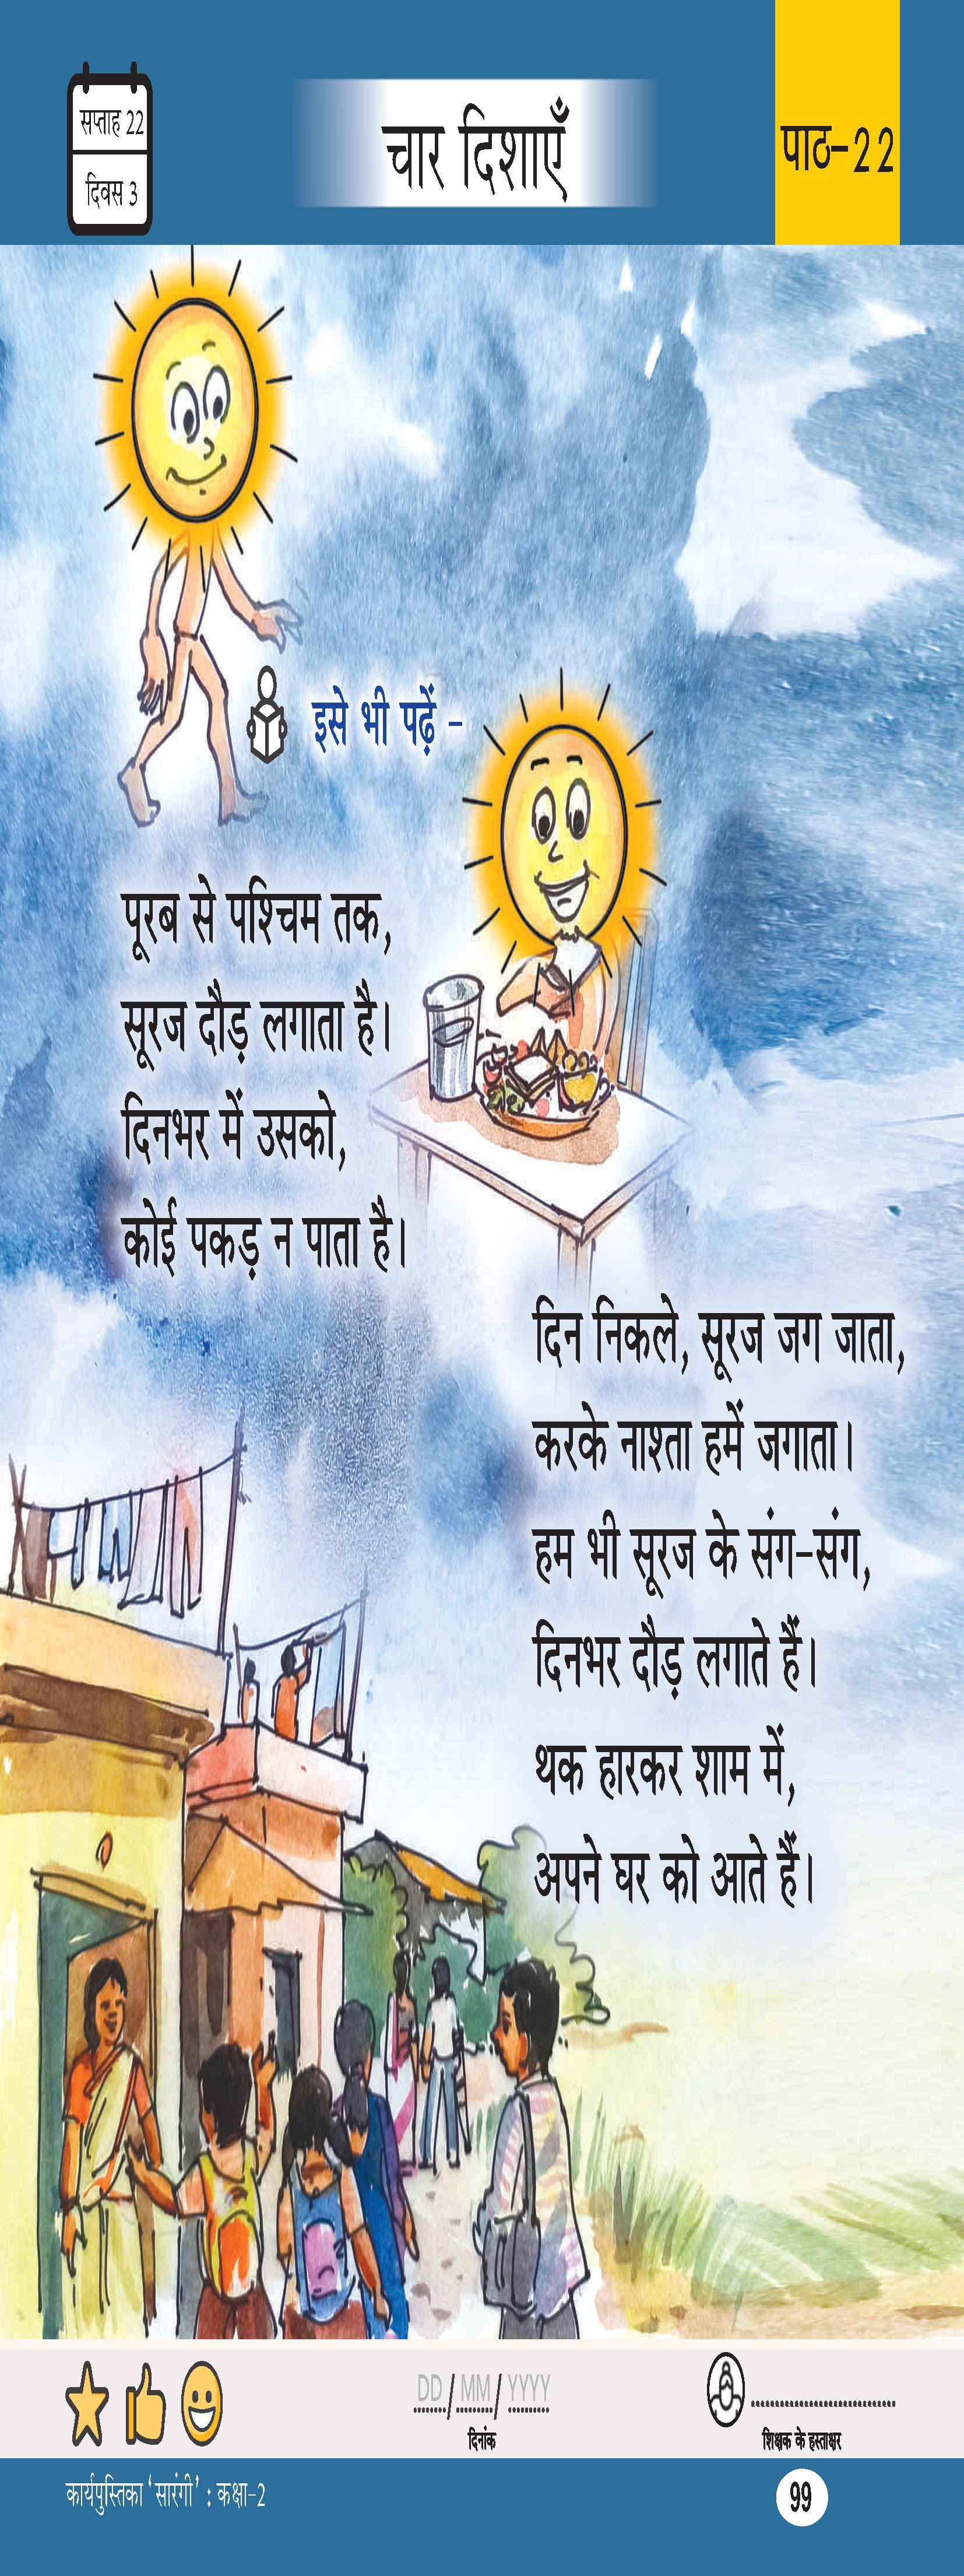 सप्ताह 22
दिवस 3
चार दिशाएँ
पाठ-22
इसे भी पढ़ें -
पूरब से पश्चिम तक,
सूरज दौड़ लगाता है।
दिनभर में उसको,
कोई पकड़ न पाता है।
दिन निकले, सूरज जग जाता,
करके नाश्ता हमें जगाता।
हम भी सूरज के संग-संग,
दिनभर दौड़ लगाते हैं।
थक हारकर शाम में,
अपने घर को आते हैं।
DD/MM/YYYY
दिनांक
शिक्षक के हस्ताक्षर
कार्यपुस्तिका ‘सारंगी’ : कक्षा-2
99